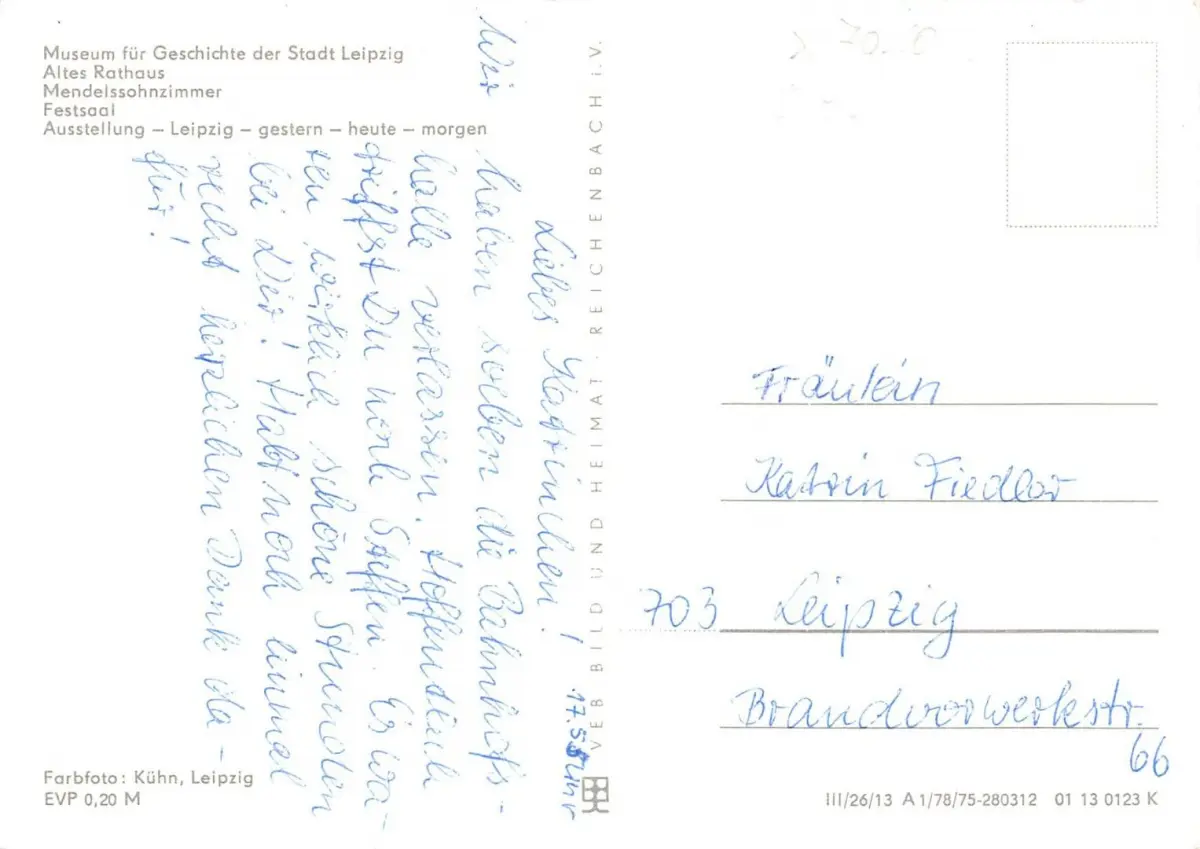 Museum für Geschichte der Stadt Leipzig
Altes Rathaus
Mendelssohnzimmer
Festsaal
Ausstellung – Leipzig – gestern – heute – morgen
17.58 Uhr
Liebes Katrinchen!
Wir haben soeben die Bahnhofs-
halle verlassen. Hoffentlich
triffst Du noch Steffen. Es wa-
ren wirklich schöne Stunden
bei Dir! Habt noch einmal
recht herzlichen Dank da-
für!
Farbfoto: Kühn, Leipzig
EVP 0,20 M
VEB BILD UND HEIMAT REICHENBACH i. V.
Fräulein
Katrin Fiedler
703 Leipzig
Brandvorwerkstr.
66
III/26/13 A 1/78/75-280312 01 13 0123 K